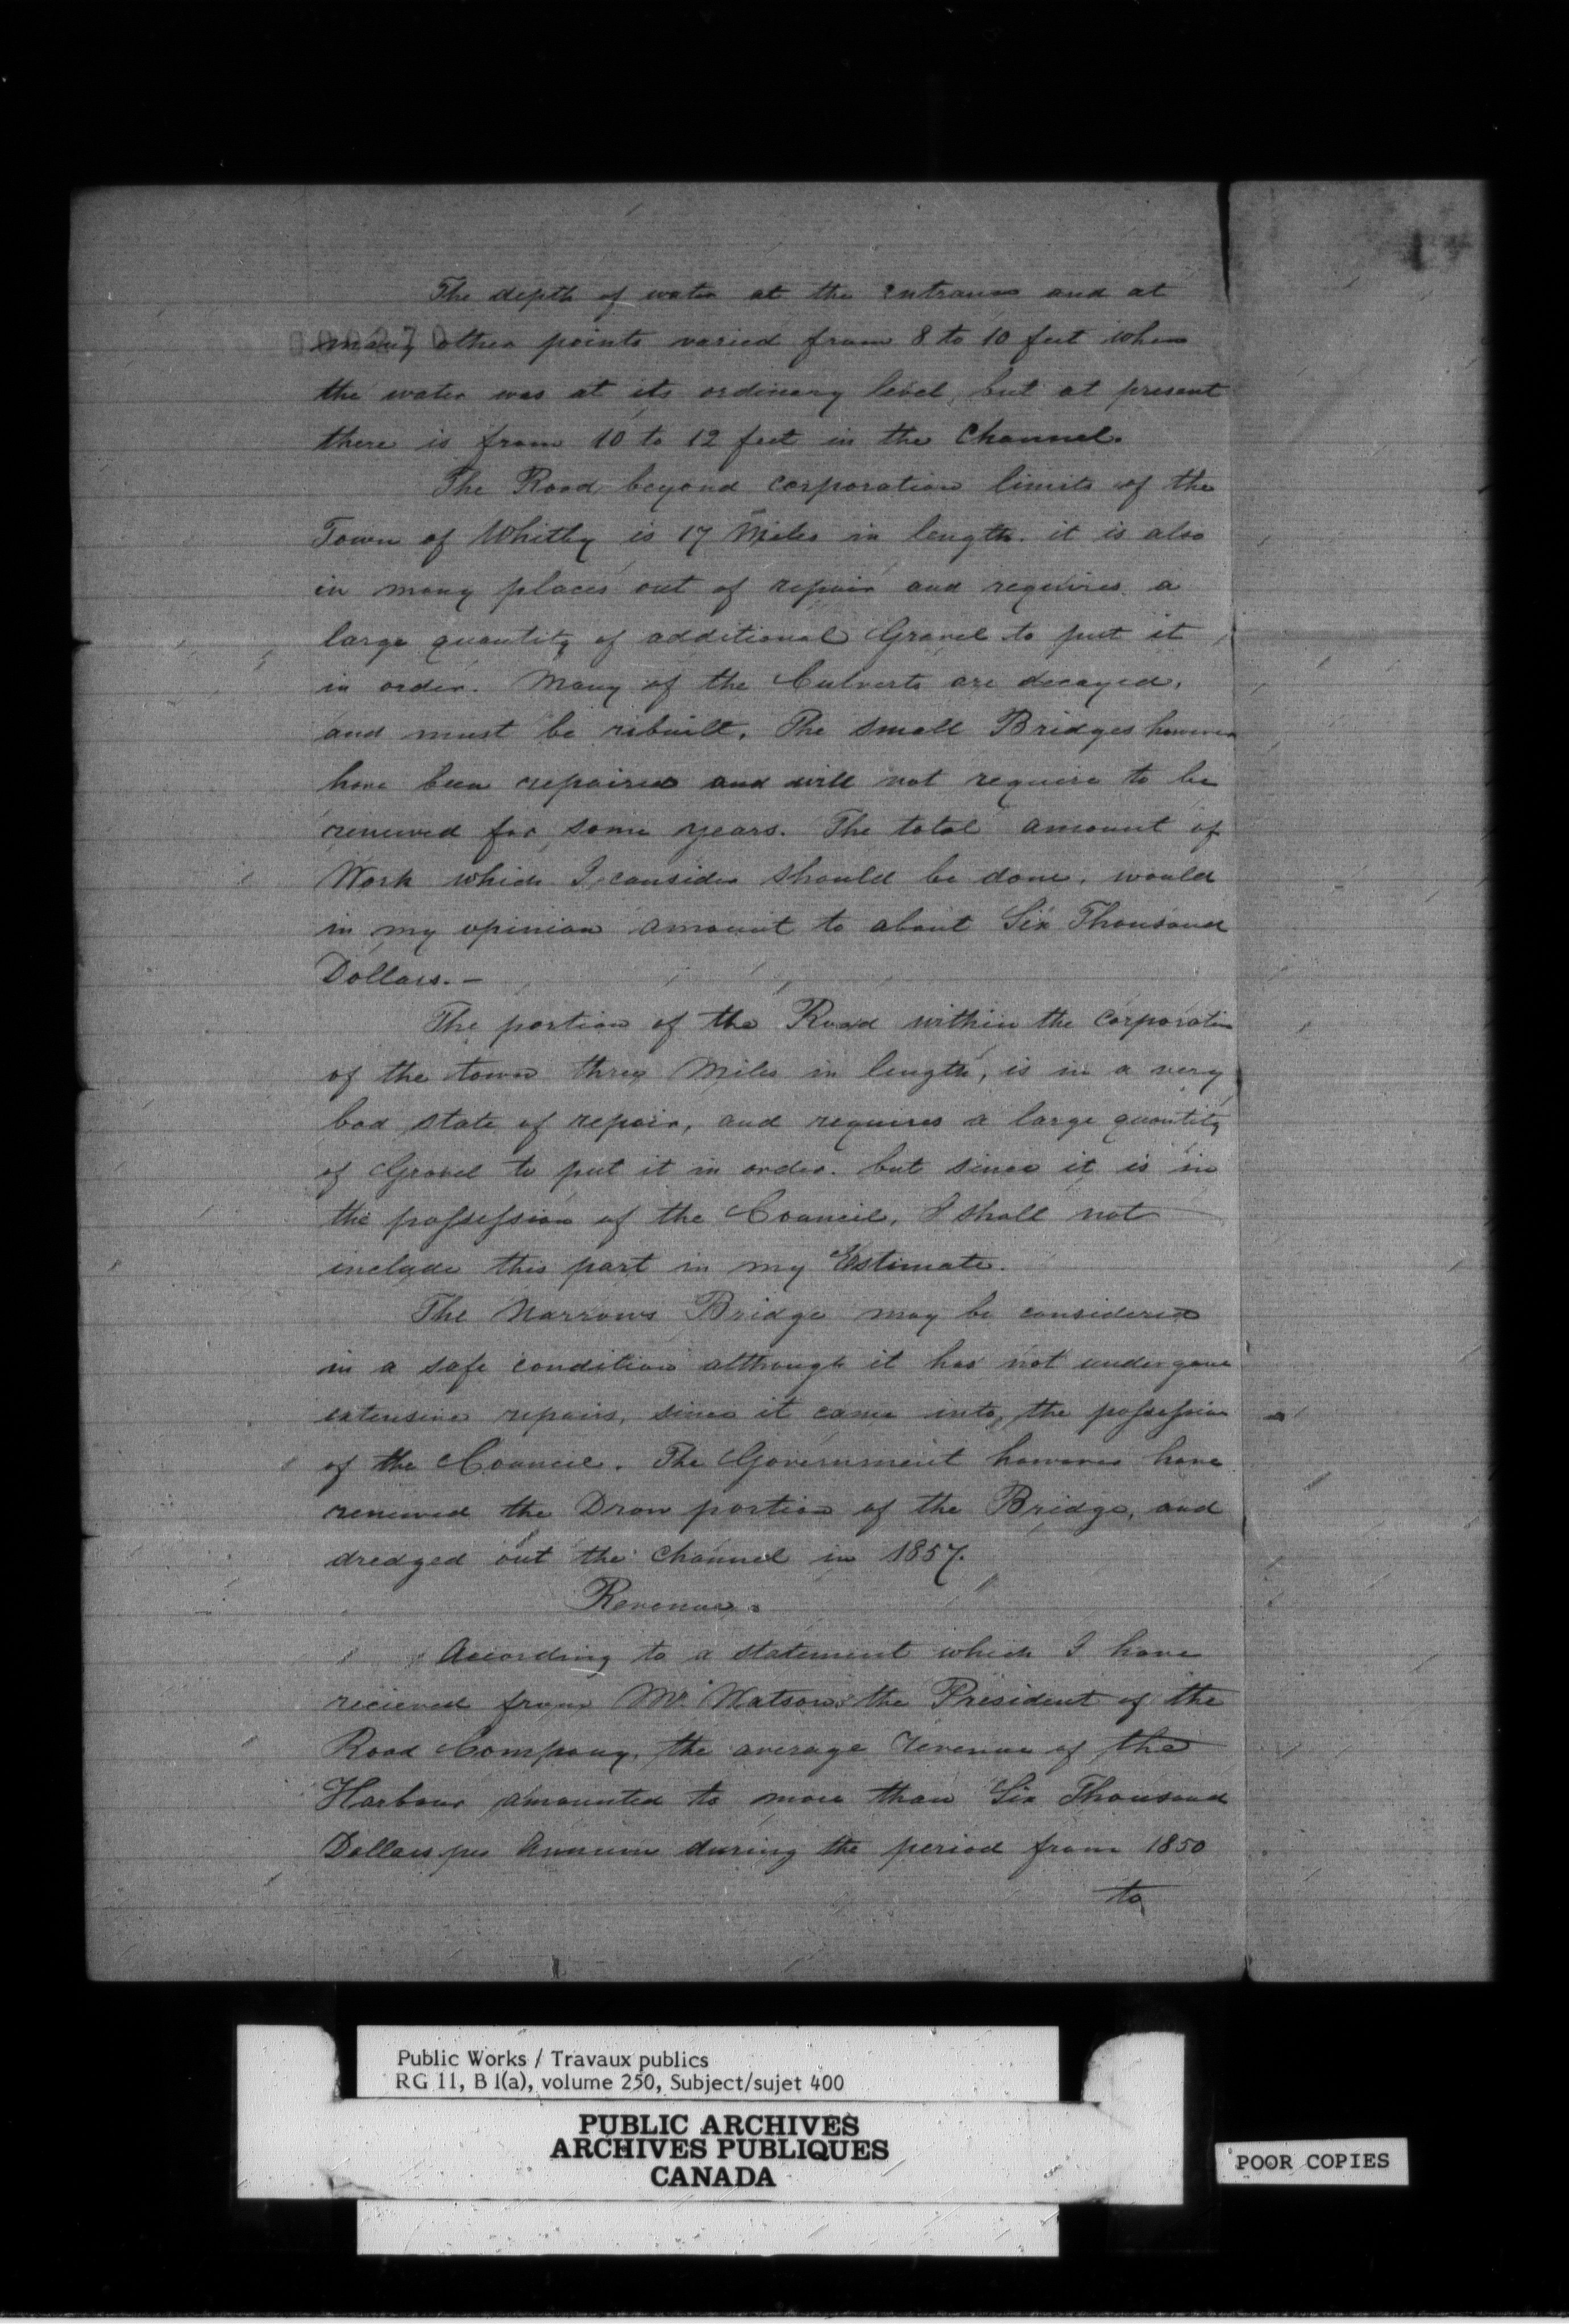 The depth of water at the entrance and at
many other points varied from 8 to 10 feet when
the water was at its ordinary level, but at present
there is from 10 to 12 feet in the Channel.
The Road beyond corporation limits of the
Town of Whitby is 17 Miles in length. it is also
in many places out of repair and requires a
large quantity of additional Gravel to put it
in order. Many of the Culverts are decayed,
and must be rebuilt. The small Bridges however
have been repaired and will not require to be
renewed for some years. The total amount of
Work which I consider should be done, would
in my opinion amount to about Six Thousand
Dollars. –
The portion of the Road within the corporation
of the town three Miles in length, is in a very
bad state of repair, and requires a large quantity
of Gravel to put it in order. but since it is in
the possession of the Council, I shall not
include this part in my Estimate.
The Narrows Bridge may be considered
in a safe condition although it has not undergone
extensive repairs, since it came into the possession
of the Council. The Government however have
renewed the Draw portion of the Bridge, and
dredged out the channel in 1857.
Revenue.
According to a statement which I have
recieved from Mr. Watson the President of the
Road Company, the average revenue of the
Harbour amounted to more than Six Thousand
Dollars per Annum during the period from 1850
to
Public Works / Travaux publics
RG 11, B 1(a), volume 250, Subject/sujet 400
PUBLIC ARCHIVES
ARCHIVES PUBLIQUES
CANADA
POOR COPIES